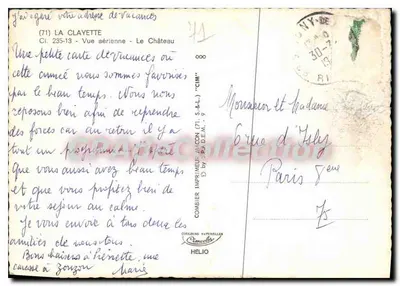 j'ai égaré votre adresse de vacances
(71) LA CLAYETTE
Cl. 235-13 - Vue aérienne - Le Château
71
Une petite carte de vacances où
cette année nous sommes favorisés
par le beau temps. Nous nous
reposons bien afin de reprendre
des forces car au retour il y a
tout un
Que vous aussi avez beau temps
et que vous profitez bien de
votre séjour au calme.
Je vous envoie à tous deux les
amitiés de nous tous.
Bons baisers à
caresse à Zouzou
Marie
COMBIER IMPRIMEUR MACON (71, S.-&-L.) "CIM"
HELIO
30-7
Monsieur et Madame
6 rue d'Isly
Paris 8ème
75